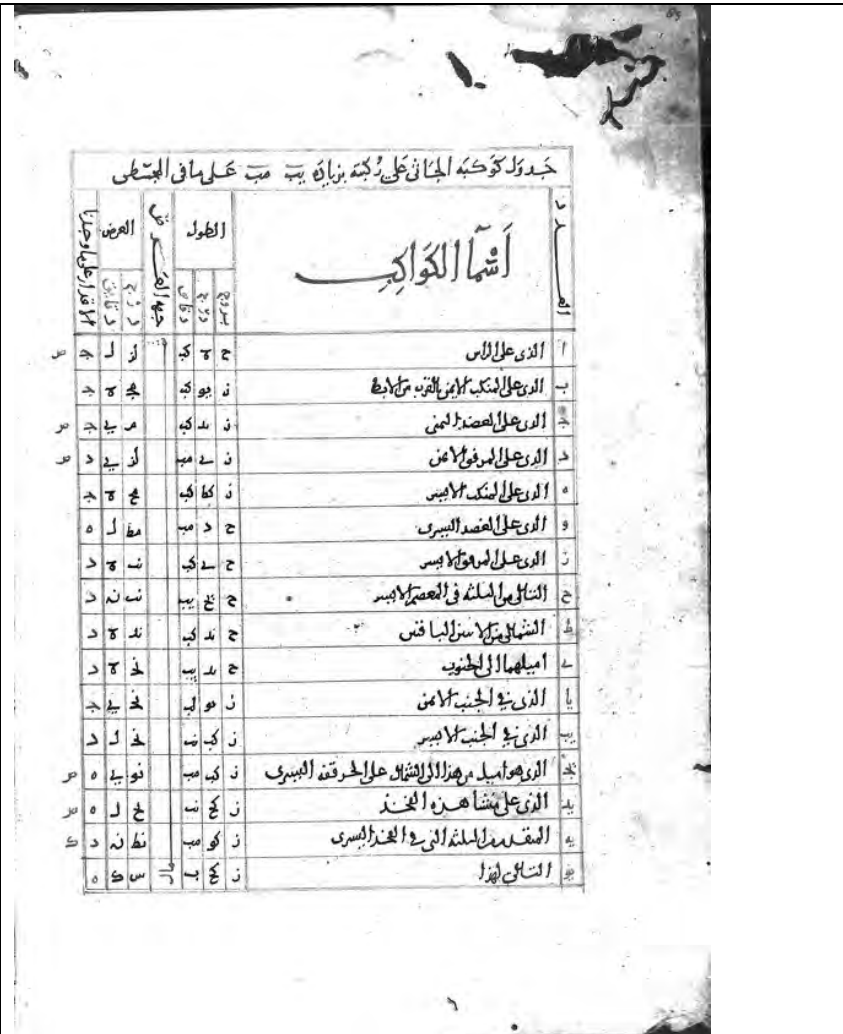 جدول كوكبة الجاثى على ركبته بزيادة يب مب على ما فى المجسطى
العدد اسما الكواكب الطول جهة العرض العرض الاقدار على ما وجدنا
بروج درج دقايق درج دقايق
ا الذى على الراس ح ة كب لز ل ج ص
ب الذى على المنكب الايمن بالقرب من الابط ز يو كب مج ة ج
ج الذى على العضد اليمنى ز يد كب م ى ج ص
د الذى على المرفق الايمن ز ى مب لز ى د ص
ه الذى على المنكب الايسر ز كط كب مح ة ج
و الذى على العضد اليسرى ح د مب مط ل ه
ز الذى على المرفق الايسر ح ى كب نب ة د
ح التالى من الثلثة فى المعصم الايسر ح يح يب نب ن د
ط الشمالى من الاثنين الباقيين ح يد كب ند ة د
ى اميلهما الى الجنوب ح يد يب نج ة د
يا الذى فى الجنب الايمن ز يو لب نج ى ج
يب الذى فى الجنب الايسر ز كب نب نج ل د
يج الذى هو اميل من هذا الى الشمال على الحرقفة اليسرى ز كب مب نو ى ه ص
يد الذى على منشا هذه الفخذ ز كج نب نح ل ه ص
يه المتقدم من الثلثة التى فى الفخذ اليسرى ز كو مب نط ن د ك
يو التالى لهذا ز كح ب شمال س ك ه